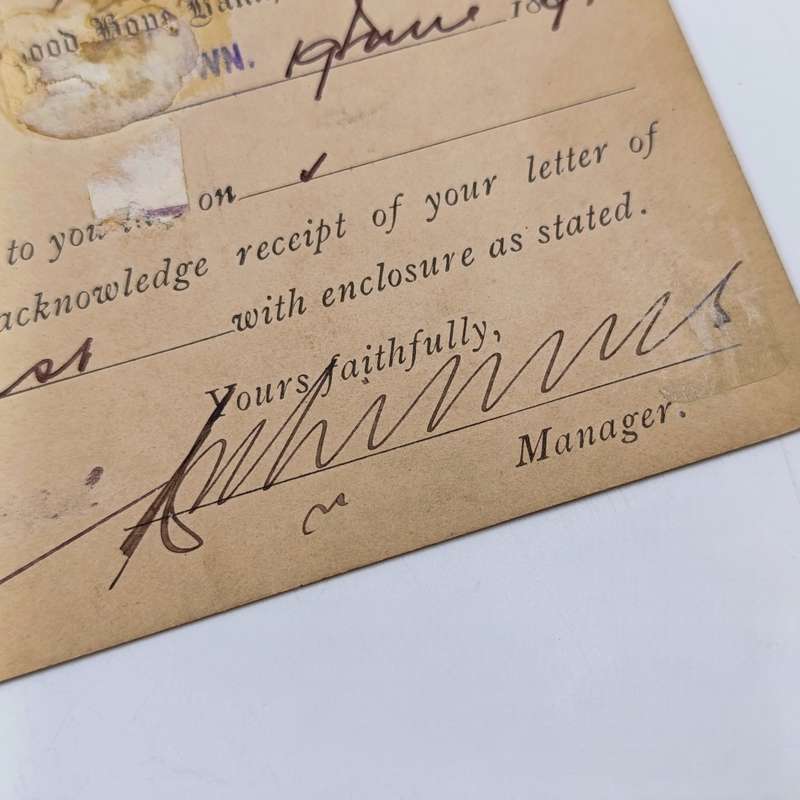 ood Hope Bank,
WN. 19 June 189
to you on
acknowledge receipt of your letter of
st with enclosure as stated.
Yours faithfully,
Manager.